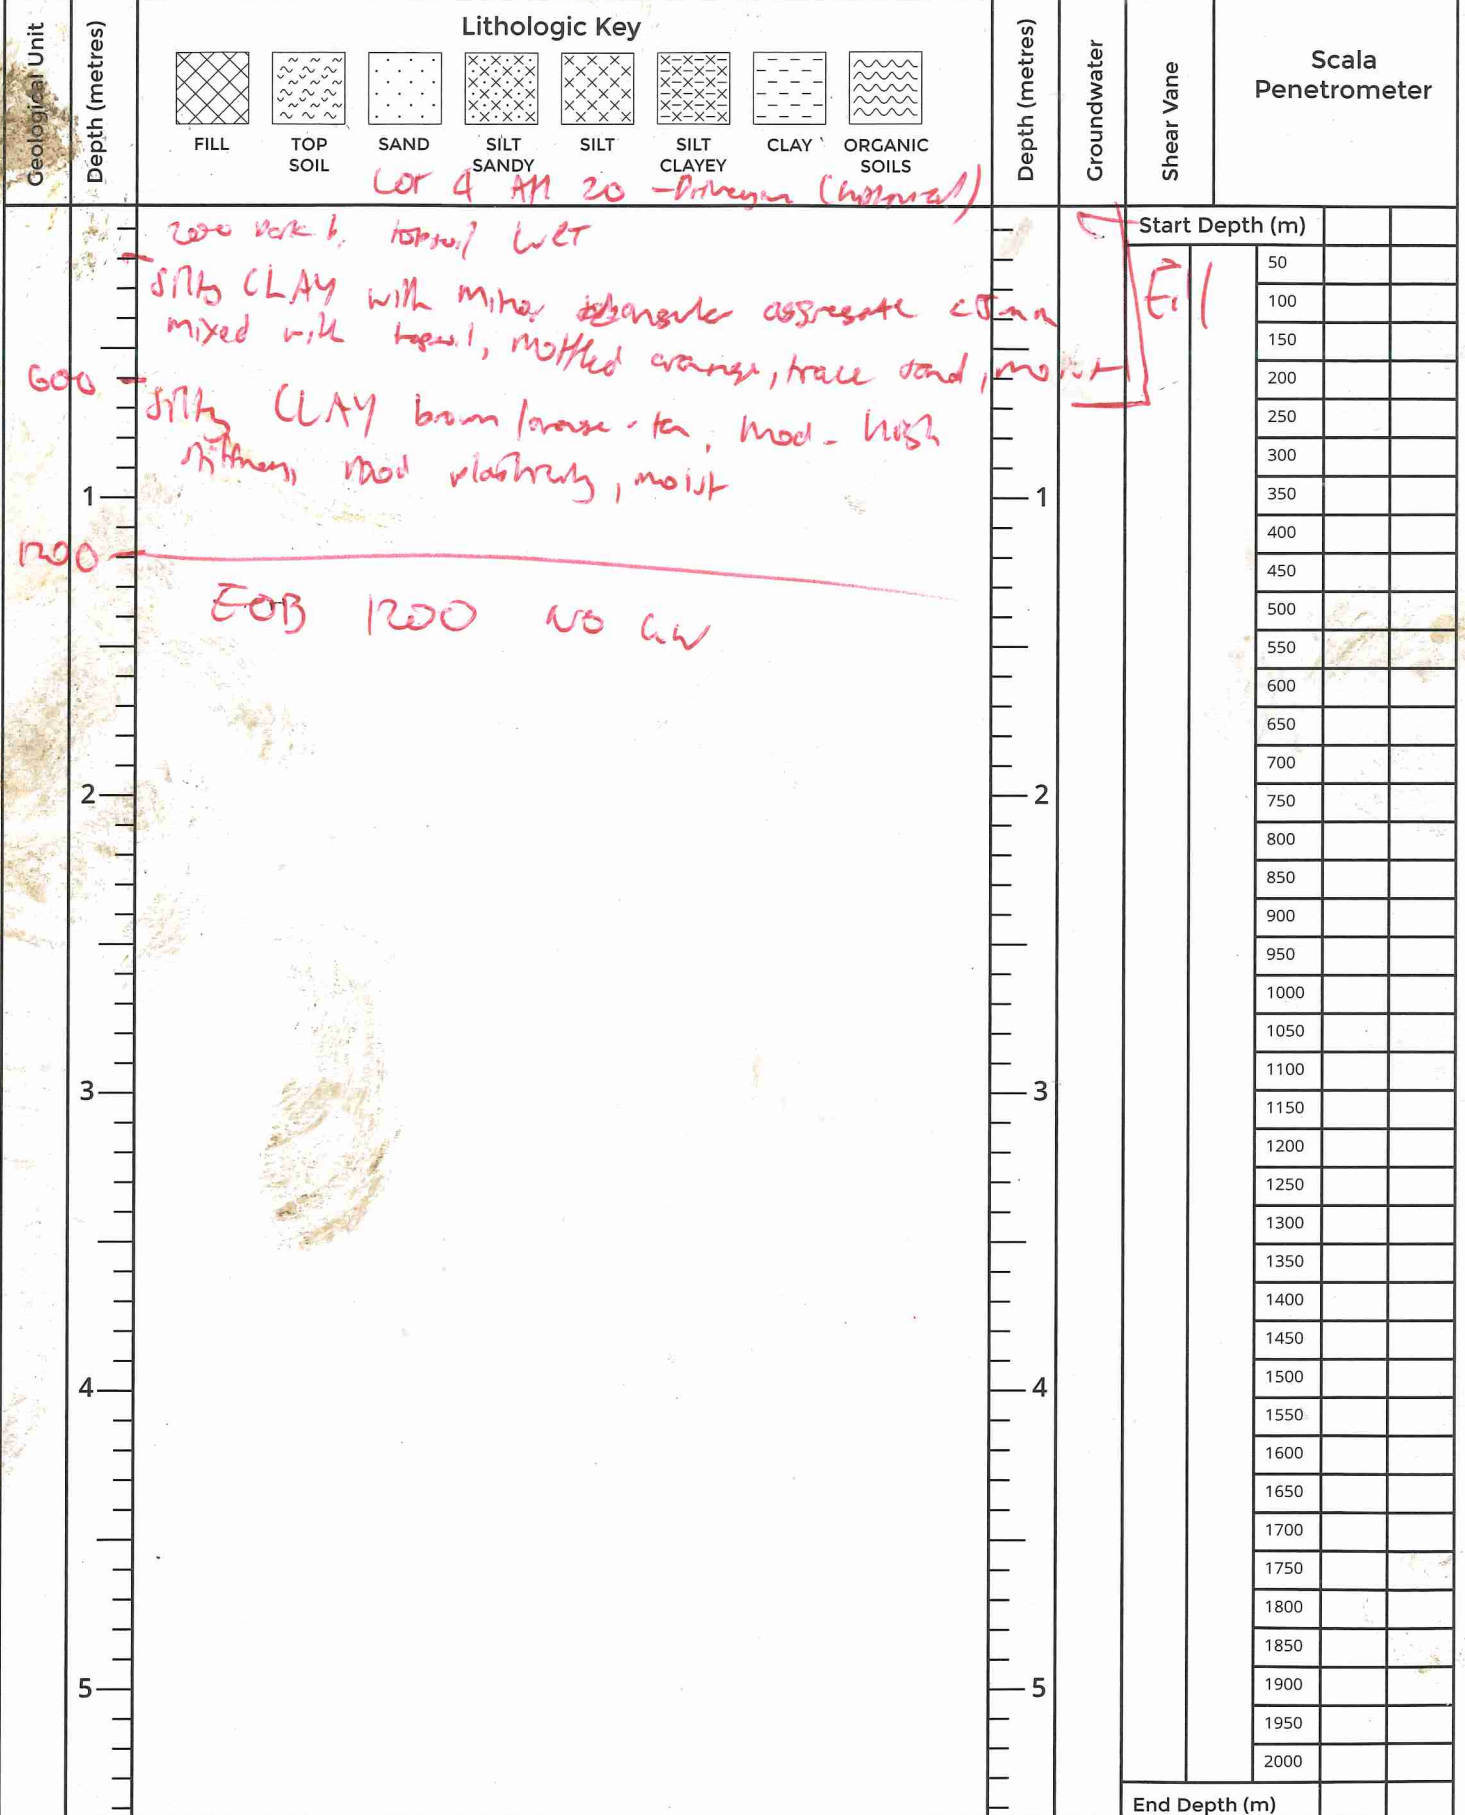 Geological Unit
Depth (metres)
Lithologic Key
FILL
TOP SOIL
SAND
SILT SANDY
SILT
SILT CLAYEY
CLAY
ORGANIC SOILS
Depth (metres)
Groundwater
Shear Vane
Scala Penetrometer
LOT 4 AH 20 - Driveway
200 Dark b. topsoil WET
Silty CLAY with minor aggregate <5mm
mixed with topsoil, mottled orange, trace sand, moist
Fill
600
Silty CLAY brown/orange-tan, mod-high
stiffness, mod plasticity, moist
1
1
1200
EOB 1200 NO GW
2
2
3
3
4
4
5
5
Start Depth (m)
50
100
150
200
250
300
350
400
450
500
550
600
650
700
750
800
850
900
950
1000
1050
1100
1150
1200
1250
1300
1350
1400
1450
1500
1550
1600
1650
1700
1750
1800
1850
1900
1950
2000
End Depth (m)